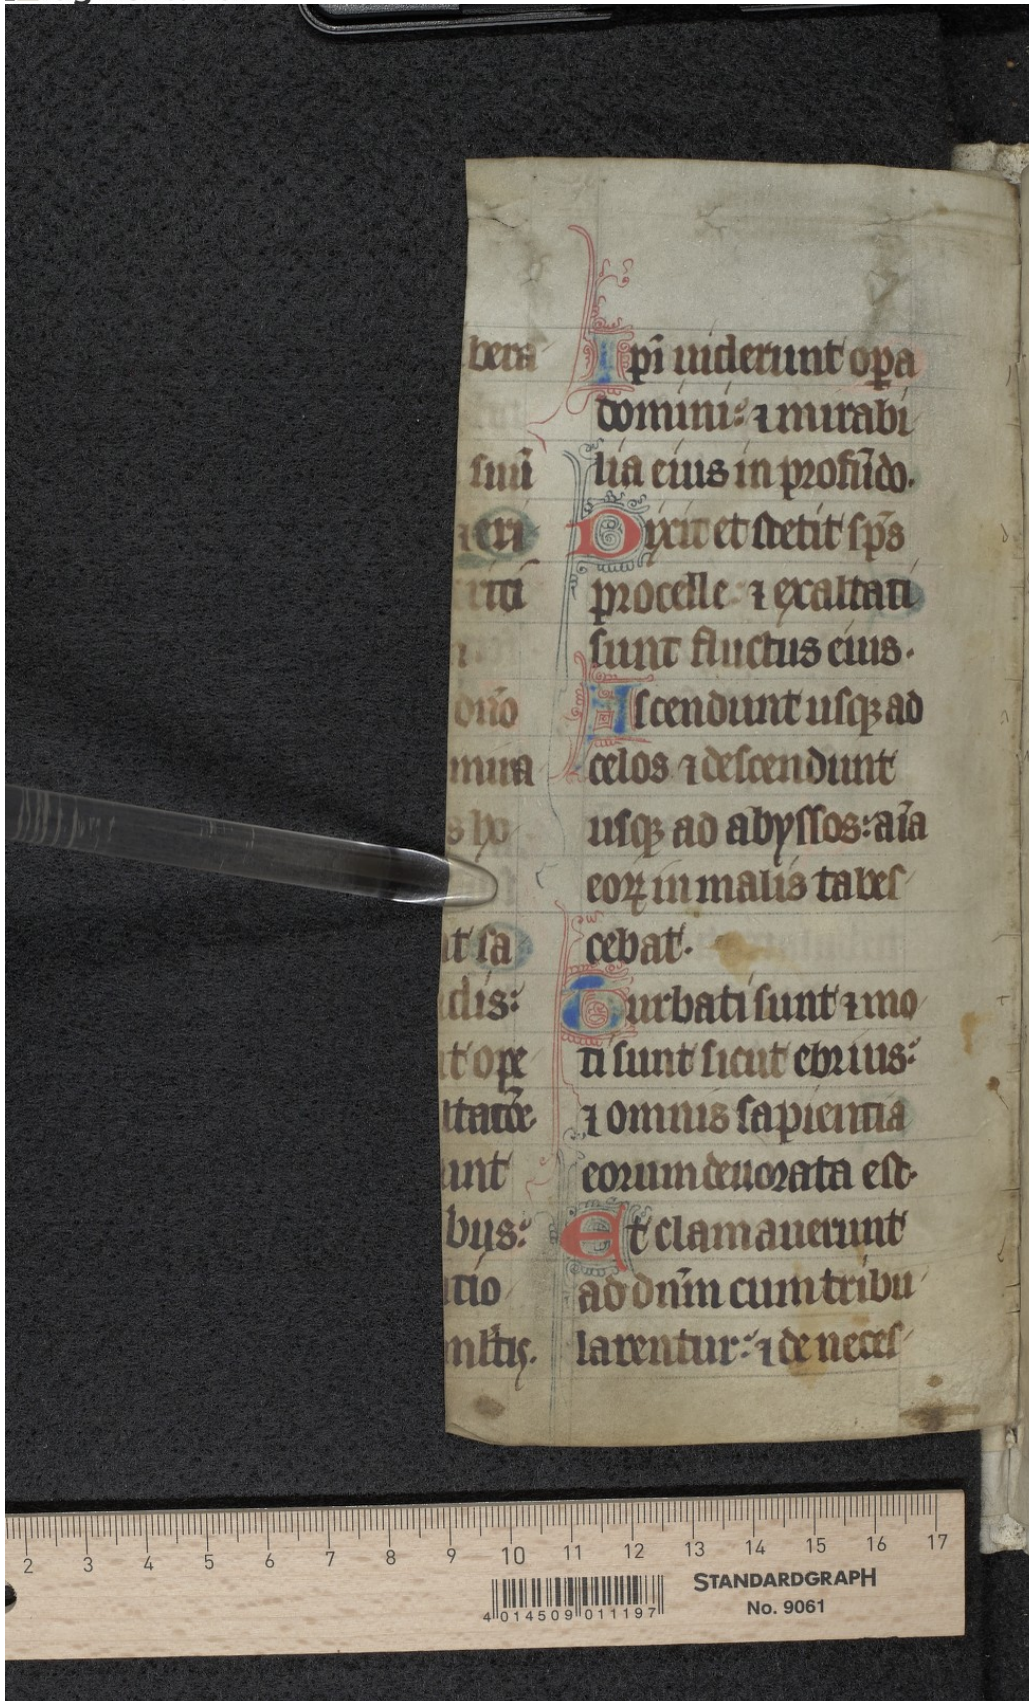 bera
suū
⁊ eri
dn̄o
mira
s ho
t sa
dis:
t ope
ltatōe
unt
bus:
tio
Ipī uiderunt oꝑa
domini: ⁊ mirabi
lia eius in profūdo.
Dixit et stetit sp̄s
procelle ⁊ exaltati
sunt fluctus eius.
Ascendunt usqꝫ ad
celos ⁊ descendunt
usqꝫ ad abyssos: aīa
eoꝝ in malis tabes
cebat.
Turbati sunt ⁊ mo
ti sunt sicut ebrius:
⁊ omnis sapientia
eorum deuorata est.
Et clamauerunt
ad dn̄m cum tribu
larentur: ⁊ de neces
2 3 4 5 6 7 8 9 10 11 12 13 14 15 16 17
STANDARDGRAPH
No. 9061
4 014509 011197